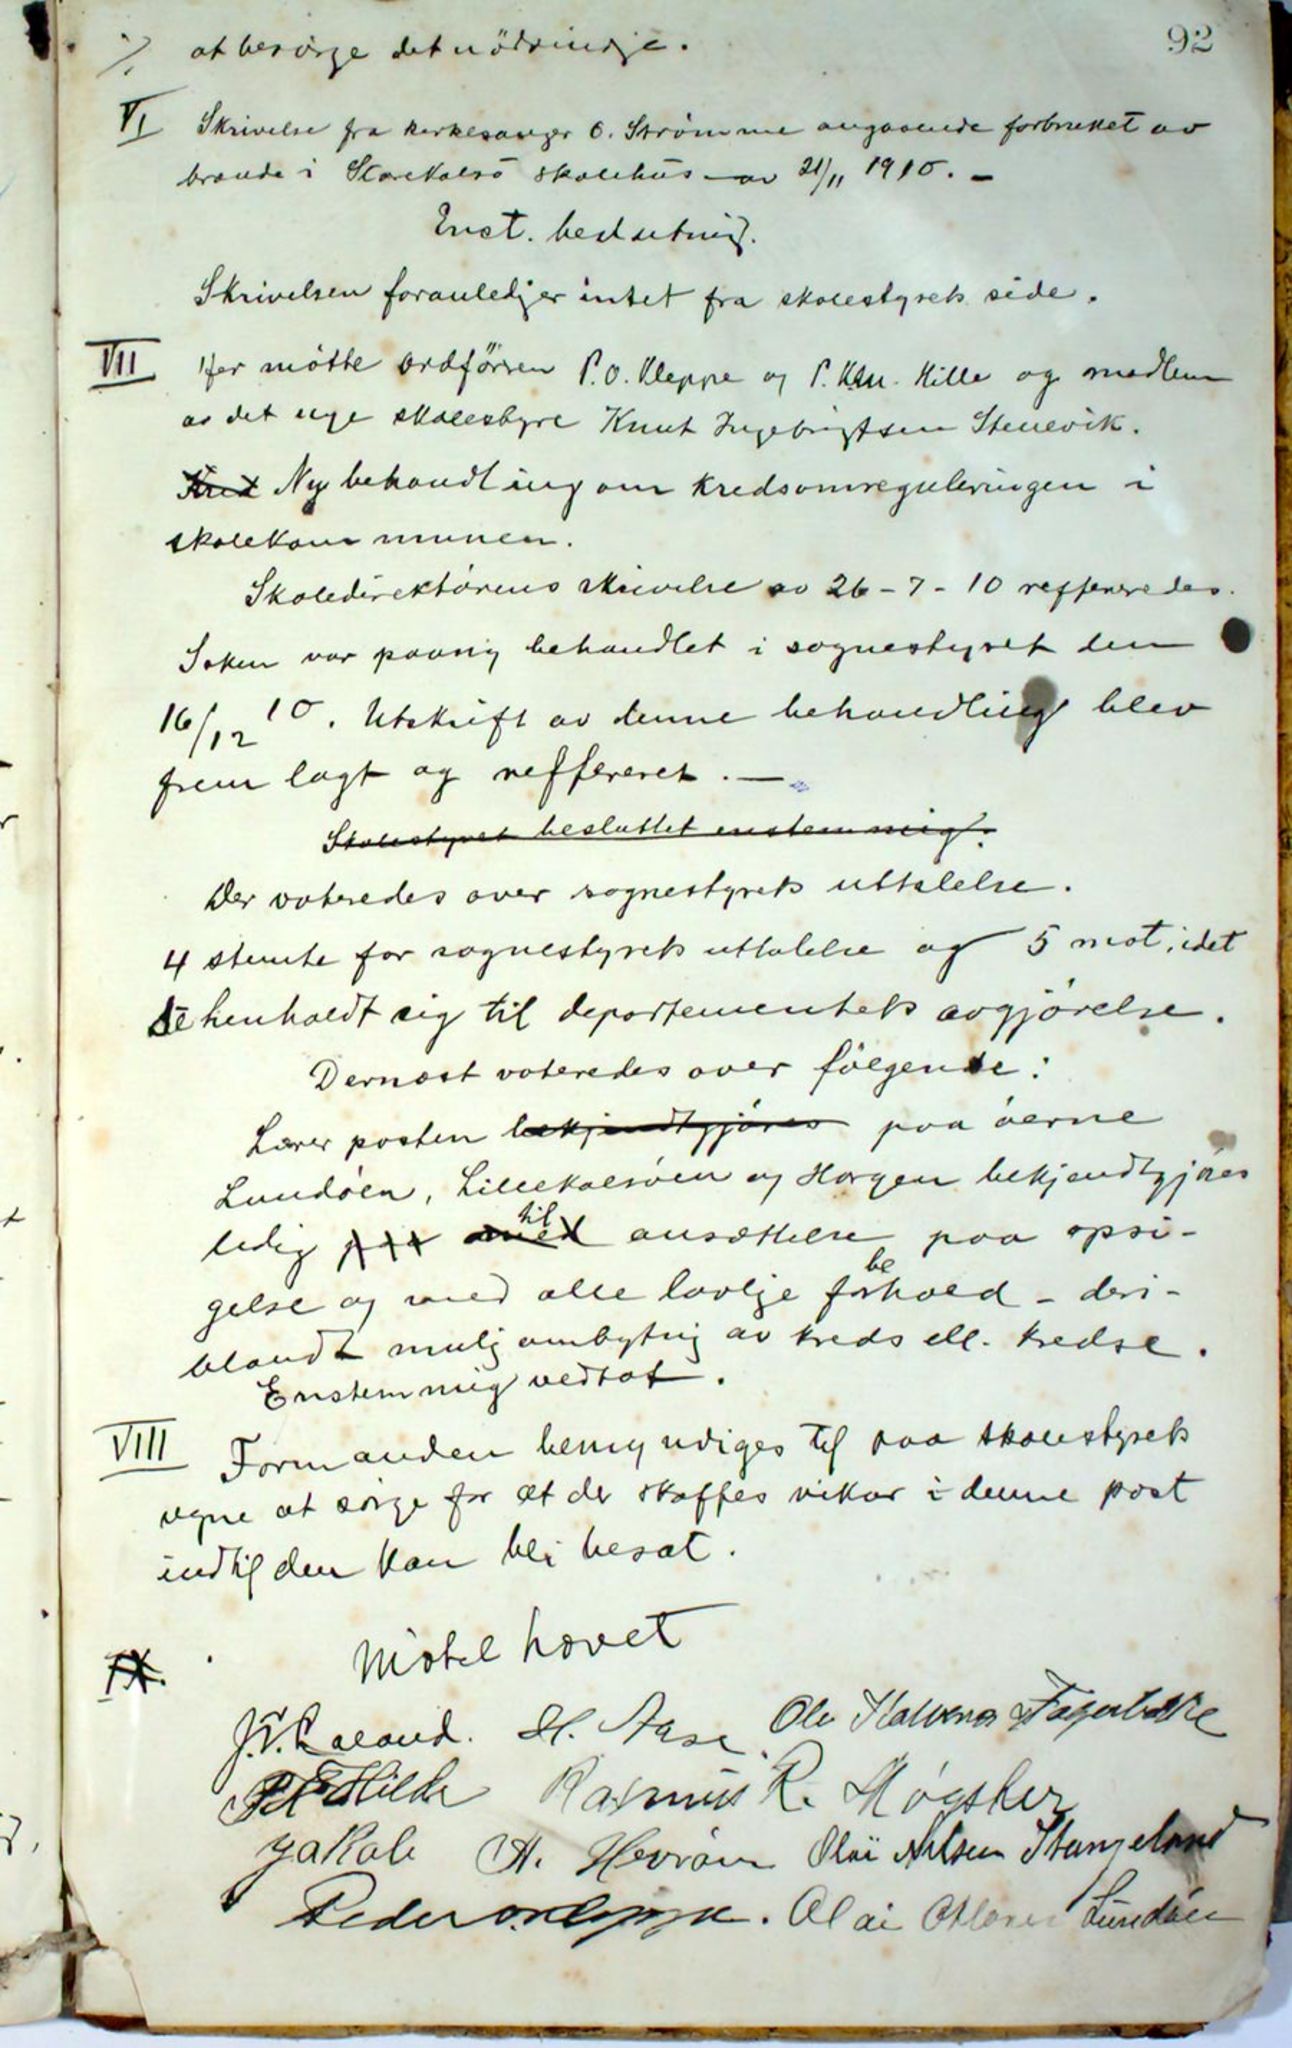 92
·/. at besörge det nödvindje.
VI Skrivelse fra kirkesanger O. Strømme angaaende forbruket av
brænde i Storekalsö skolehus av 21/11 1910. –
Enst. beslutning.
Skrivelsen foranledjer intet fra skolestyrets side.
VII Her møtte ordføreren P.O. Kleppe og P. Kn. Hille og medlem
av det nye skolestyre Knut Ingebrigtsen Stenevik.
Kred Ny behandling om kredsomreguleringen i
skolekommunen.
Skoledirektörens skrivelse av 26-7-10 reffereredes.
Saken var paany behandlet i sognestyret den
16/12 10. Utskrift av denne behandling blev
frem lagt og reffereret. —
Skolestyret besluttet enstemmig:
Der voteredes over sognestyrets uttalelse.
4 stemte for sognestyrets uttalelse og 5 mot, idet
de henholdt sig til departementets avgjörelse.
Dernæst voteredes over fölgende:
Lærer posten bekjendtgjöres paa öerne
Lundöen, Lillekalsöen og Horgen bekjendtgjöres
ledig med til ansættelse paa opsi-
gelse og med alle lovlje forbehold – deri-
blandt mulj ombytnig av kreds ell. kredse.
Enstemmig vedtat.
VIII Formanden bemyndiges til paa skolestyrets
vegne at sörge for at der skaffes vikar i denne post
indtil den kan bli besat.
IX. Mötet hævet
H. Aase Ole Halvorsen Fagerbakke
Hille Rasmus R. Møgster
Jakob A. Hevröen Olai Nilsen Stangeland
Peder O. Kleppe. Olai Lundöen